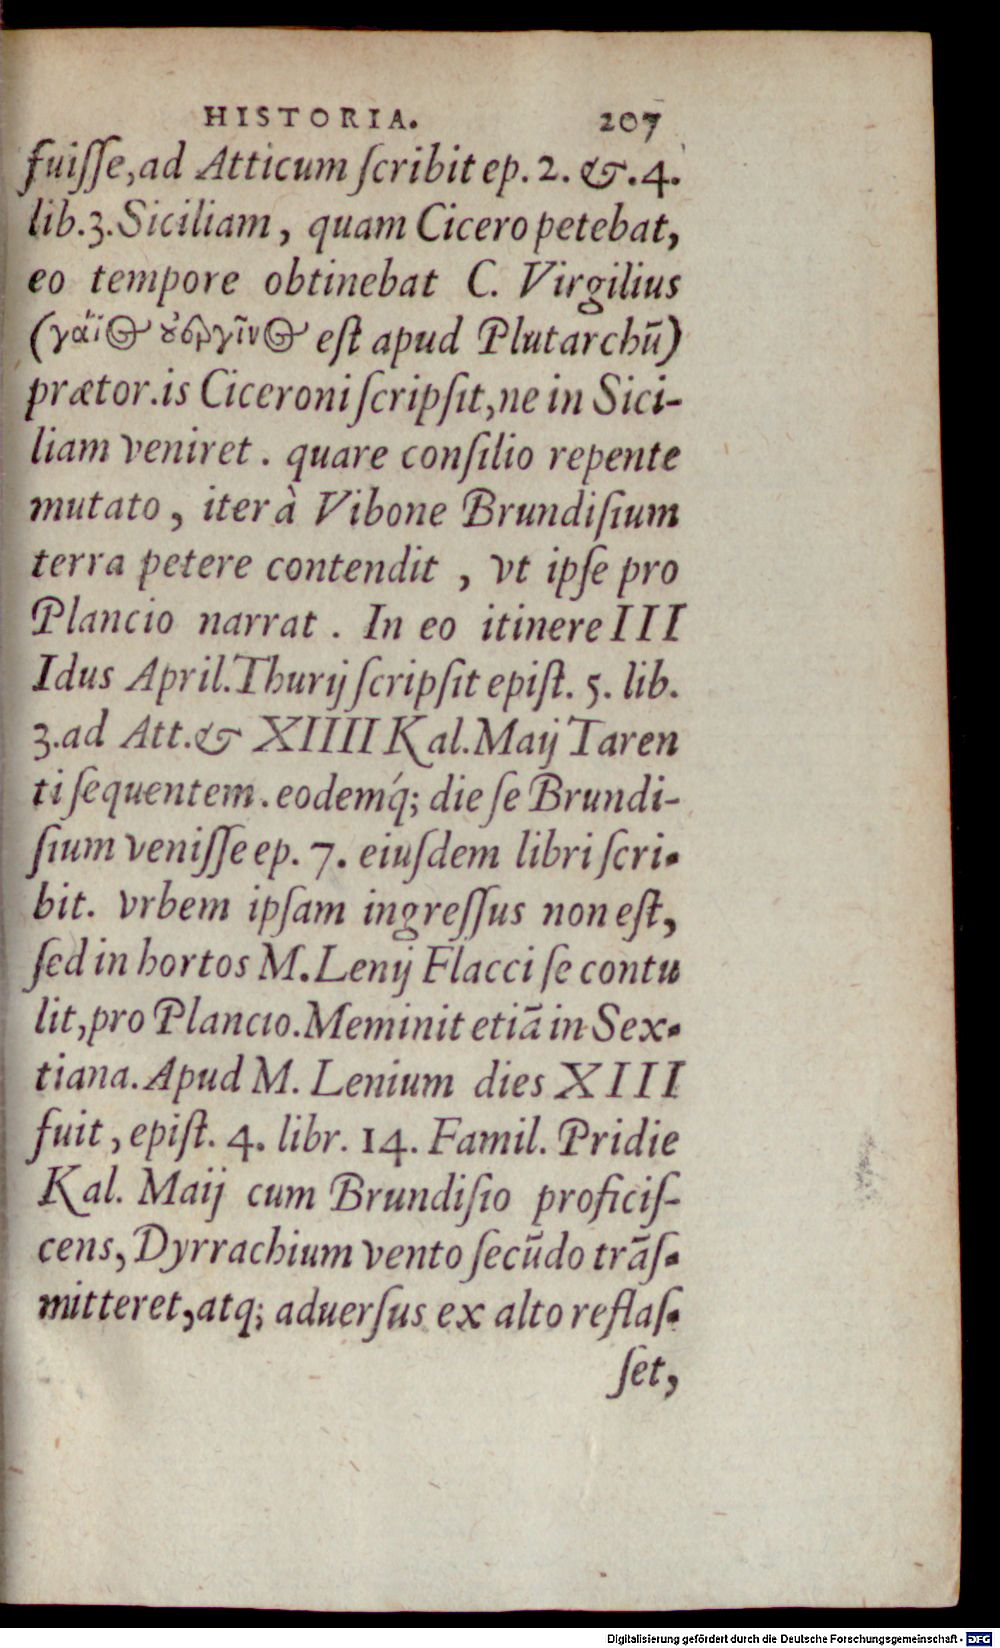 HISTORIA. 207
fuiſſe, ad Atticum ſcribit ep. 2. &. 4.
lib. 3. Siciliam, quam Cicero petebat,
eo tempore obtinebat C. Virgilius
(est apud Plutarchũ)
prætor. is Ciceroni ſcripſit, ne in Sici-
liam veniret. quare conſilio repente
mutato, iter à Vibone Brundiſium
terra petere contendit, vt ipſe pro
Plancio narrat. In eo itinere III
Idus April. Thurij ſcripſit epiſt. 5. lib.
3. ad Att. & XIIII Kal. Maij Taren
ti ſequentem. eodemq́; die ſe Brundi-
ſium veniſſe ep. 7. eiuſdem libri ſcri-
bit. vrbem ipſam ingreſſus non eſt,
ſed in hortos M. Lenij Flacci ſe contu
lit, pro Plancio. Meminit etiã in Sex-
tiana. Apud M. Lenium dies XIII
fuit, epiſt. 4. libr. 14. Famil. Pridie
Kal. Maij cum Brundiſio proficiſ-
cens, Dyrrachium vento ſecũdo trãſ-
mitteret, atq; aduerſus ex alto reflaſ-
ſet,
Digitalisierung gefördert durch die Deutsche Forschungsgemeinschaft - DFG